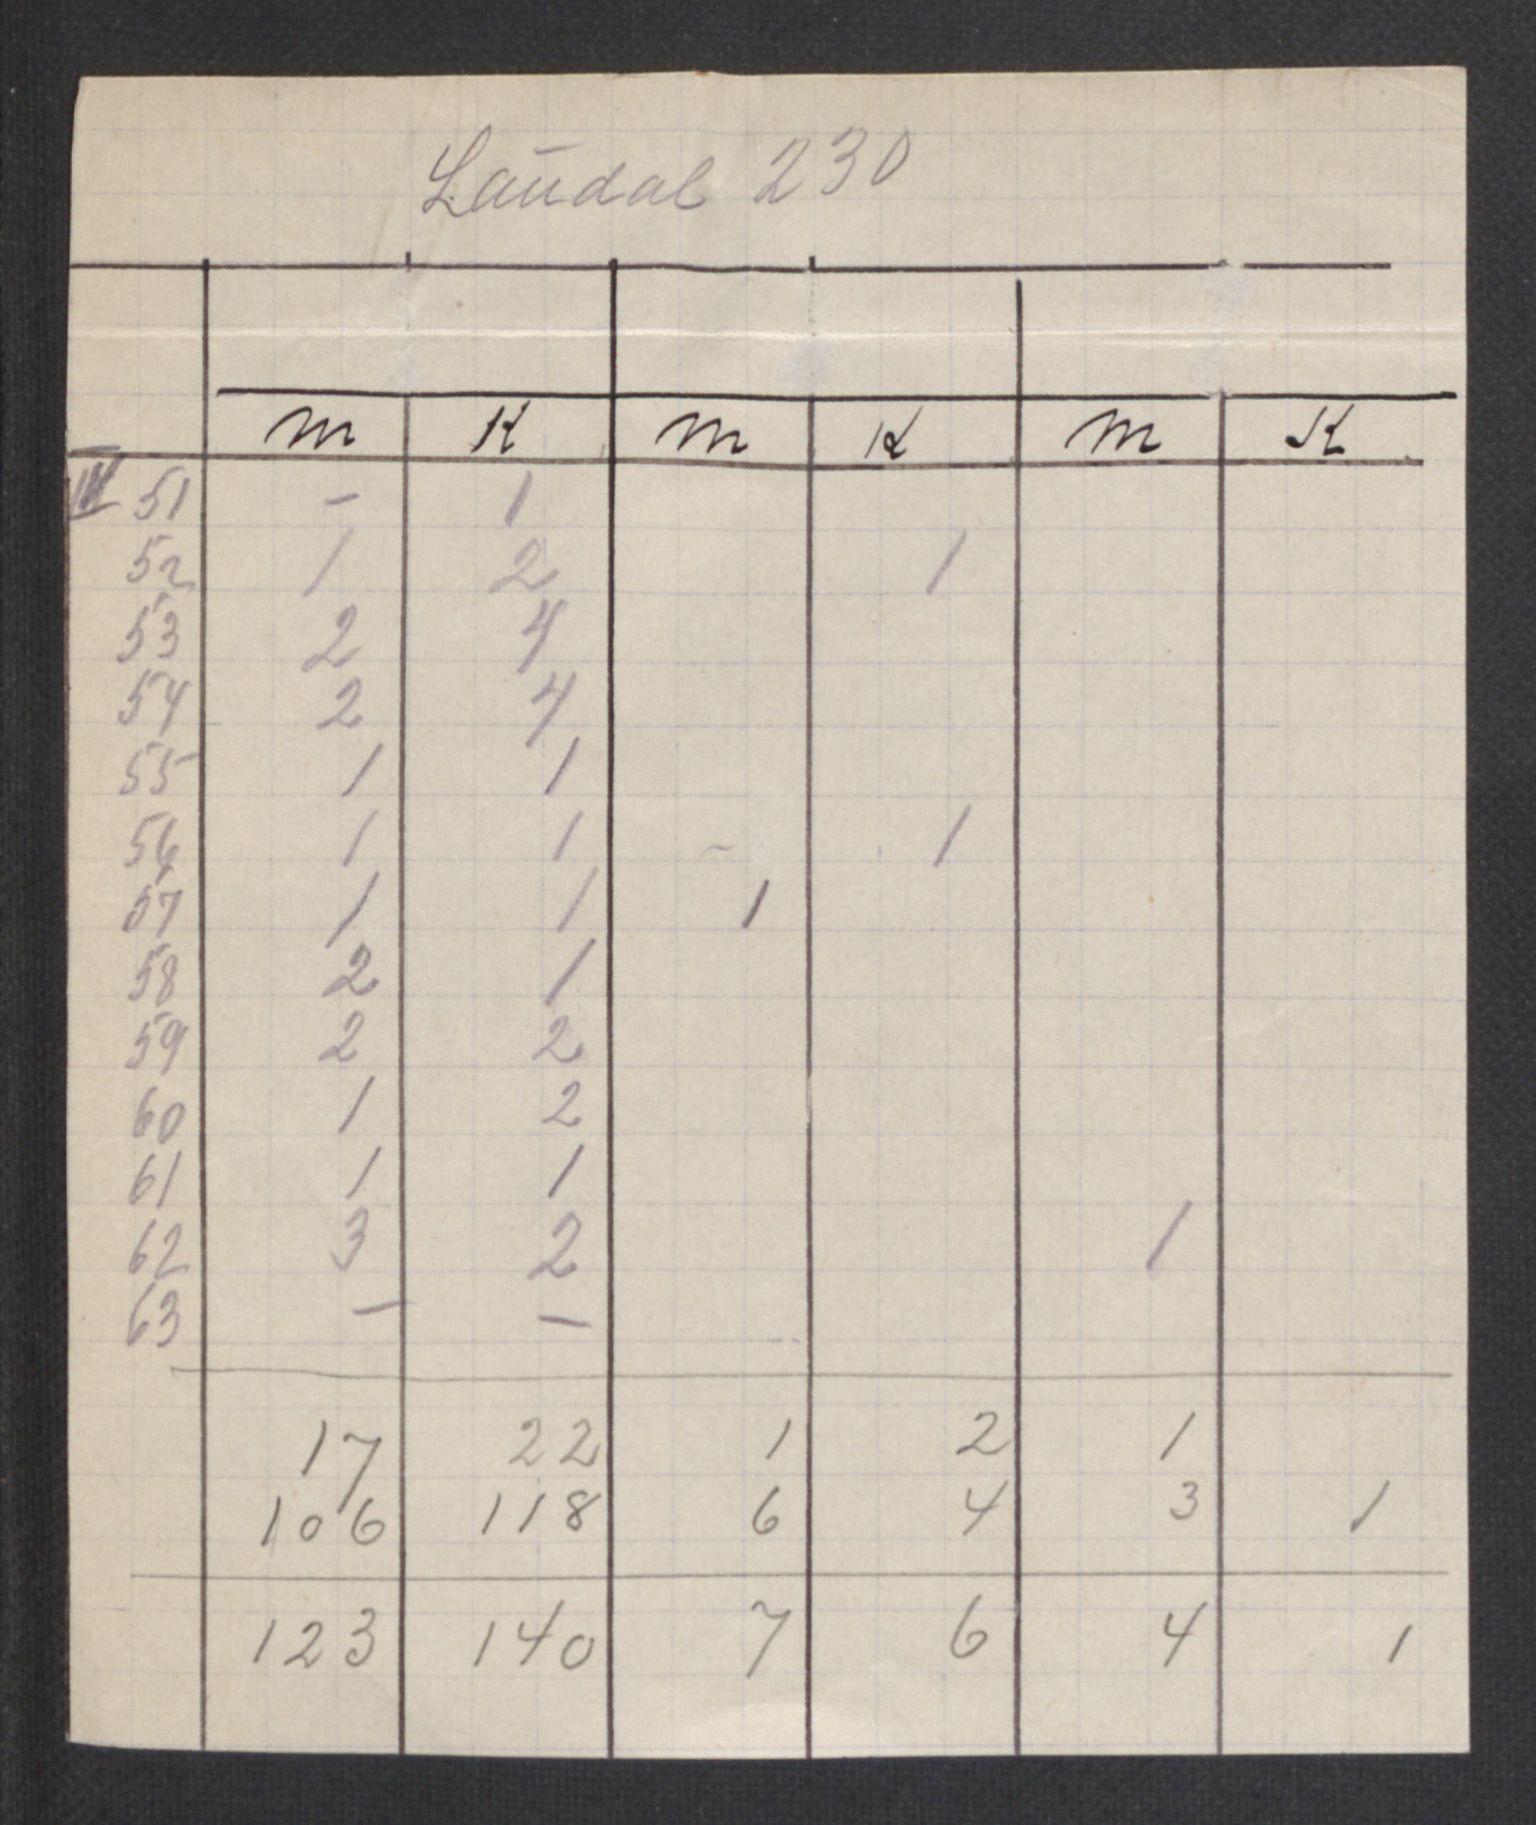 Laudal 230
M K M K M K
III 51 - 1
52 1 2 1
53 2 4
54 2 4
55 1 1
56 1 1 - 1
57 1 1 1
58 2 1
59 2 2
60 1 2
61 1 1
62 3 2 1
63 - -
17 22 1 2 1
106 118 6 4 3 1
123 140 7 6 4 1